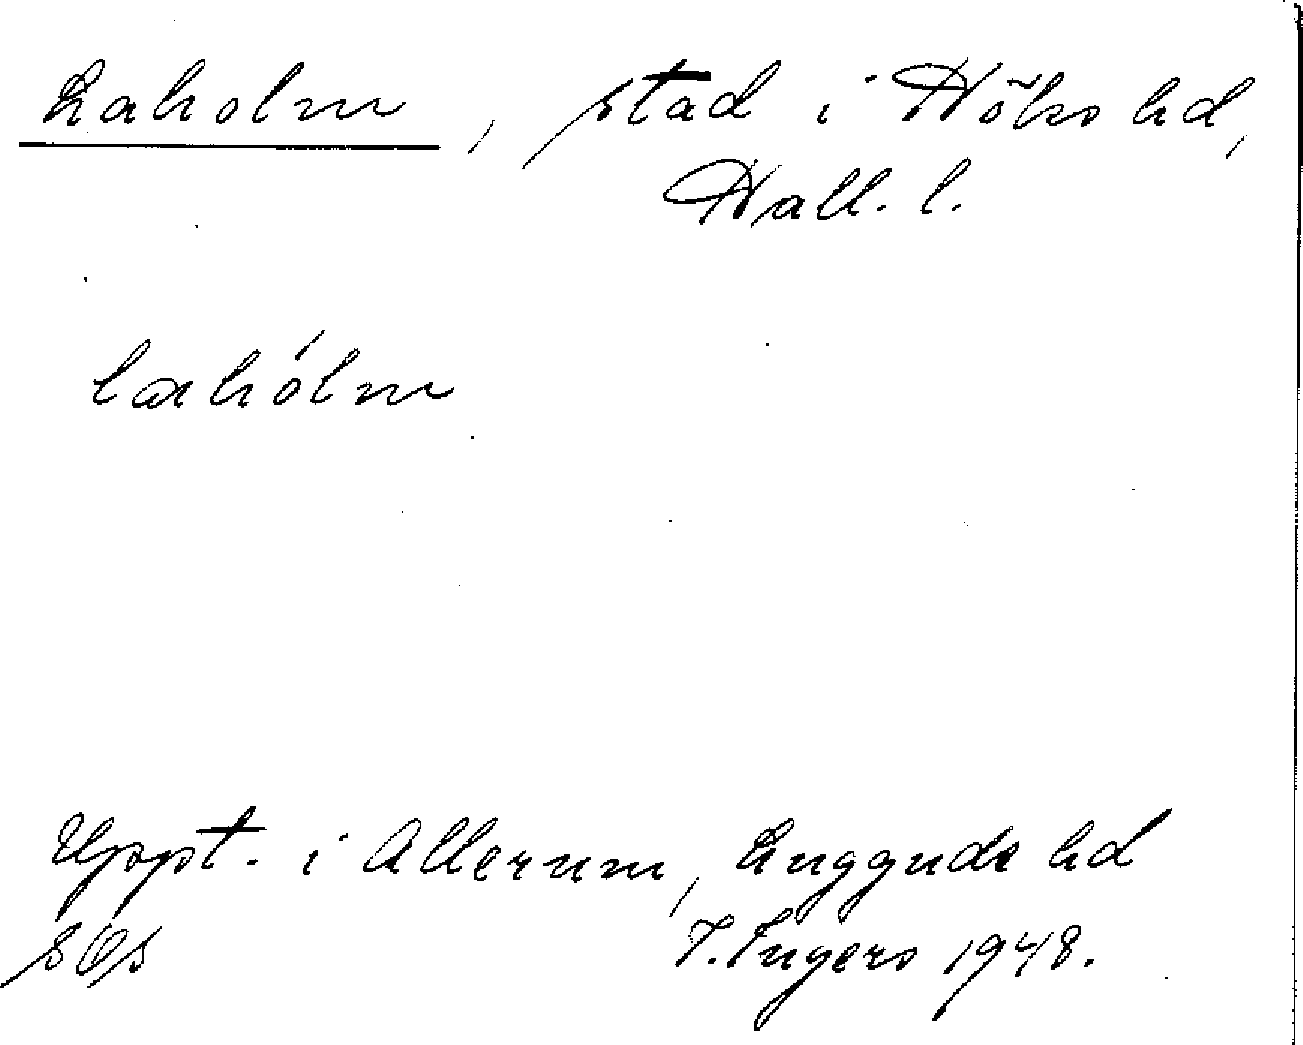 Laholm, stad i Höks hd,
Hall. l.
lahólm
Uppt. i Allerum, Luggude hd
I. Ingers 1948.